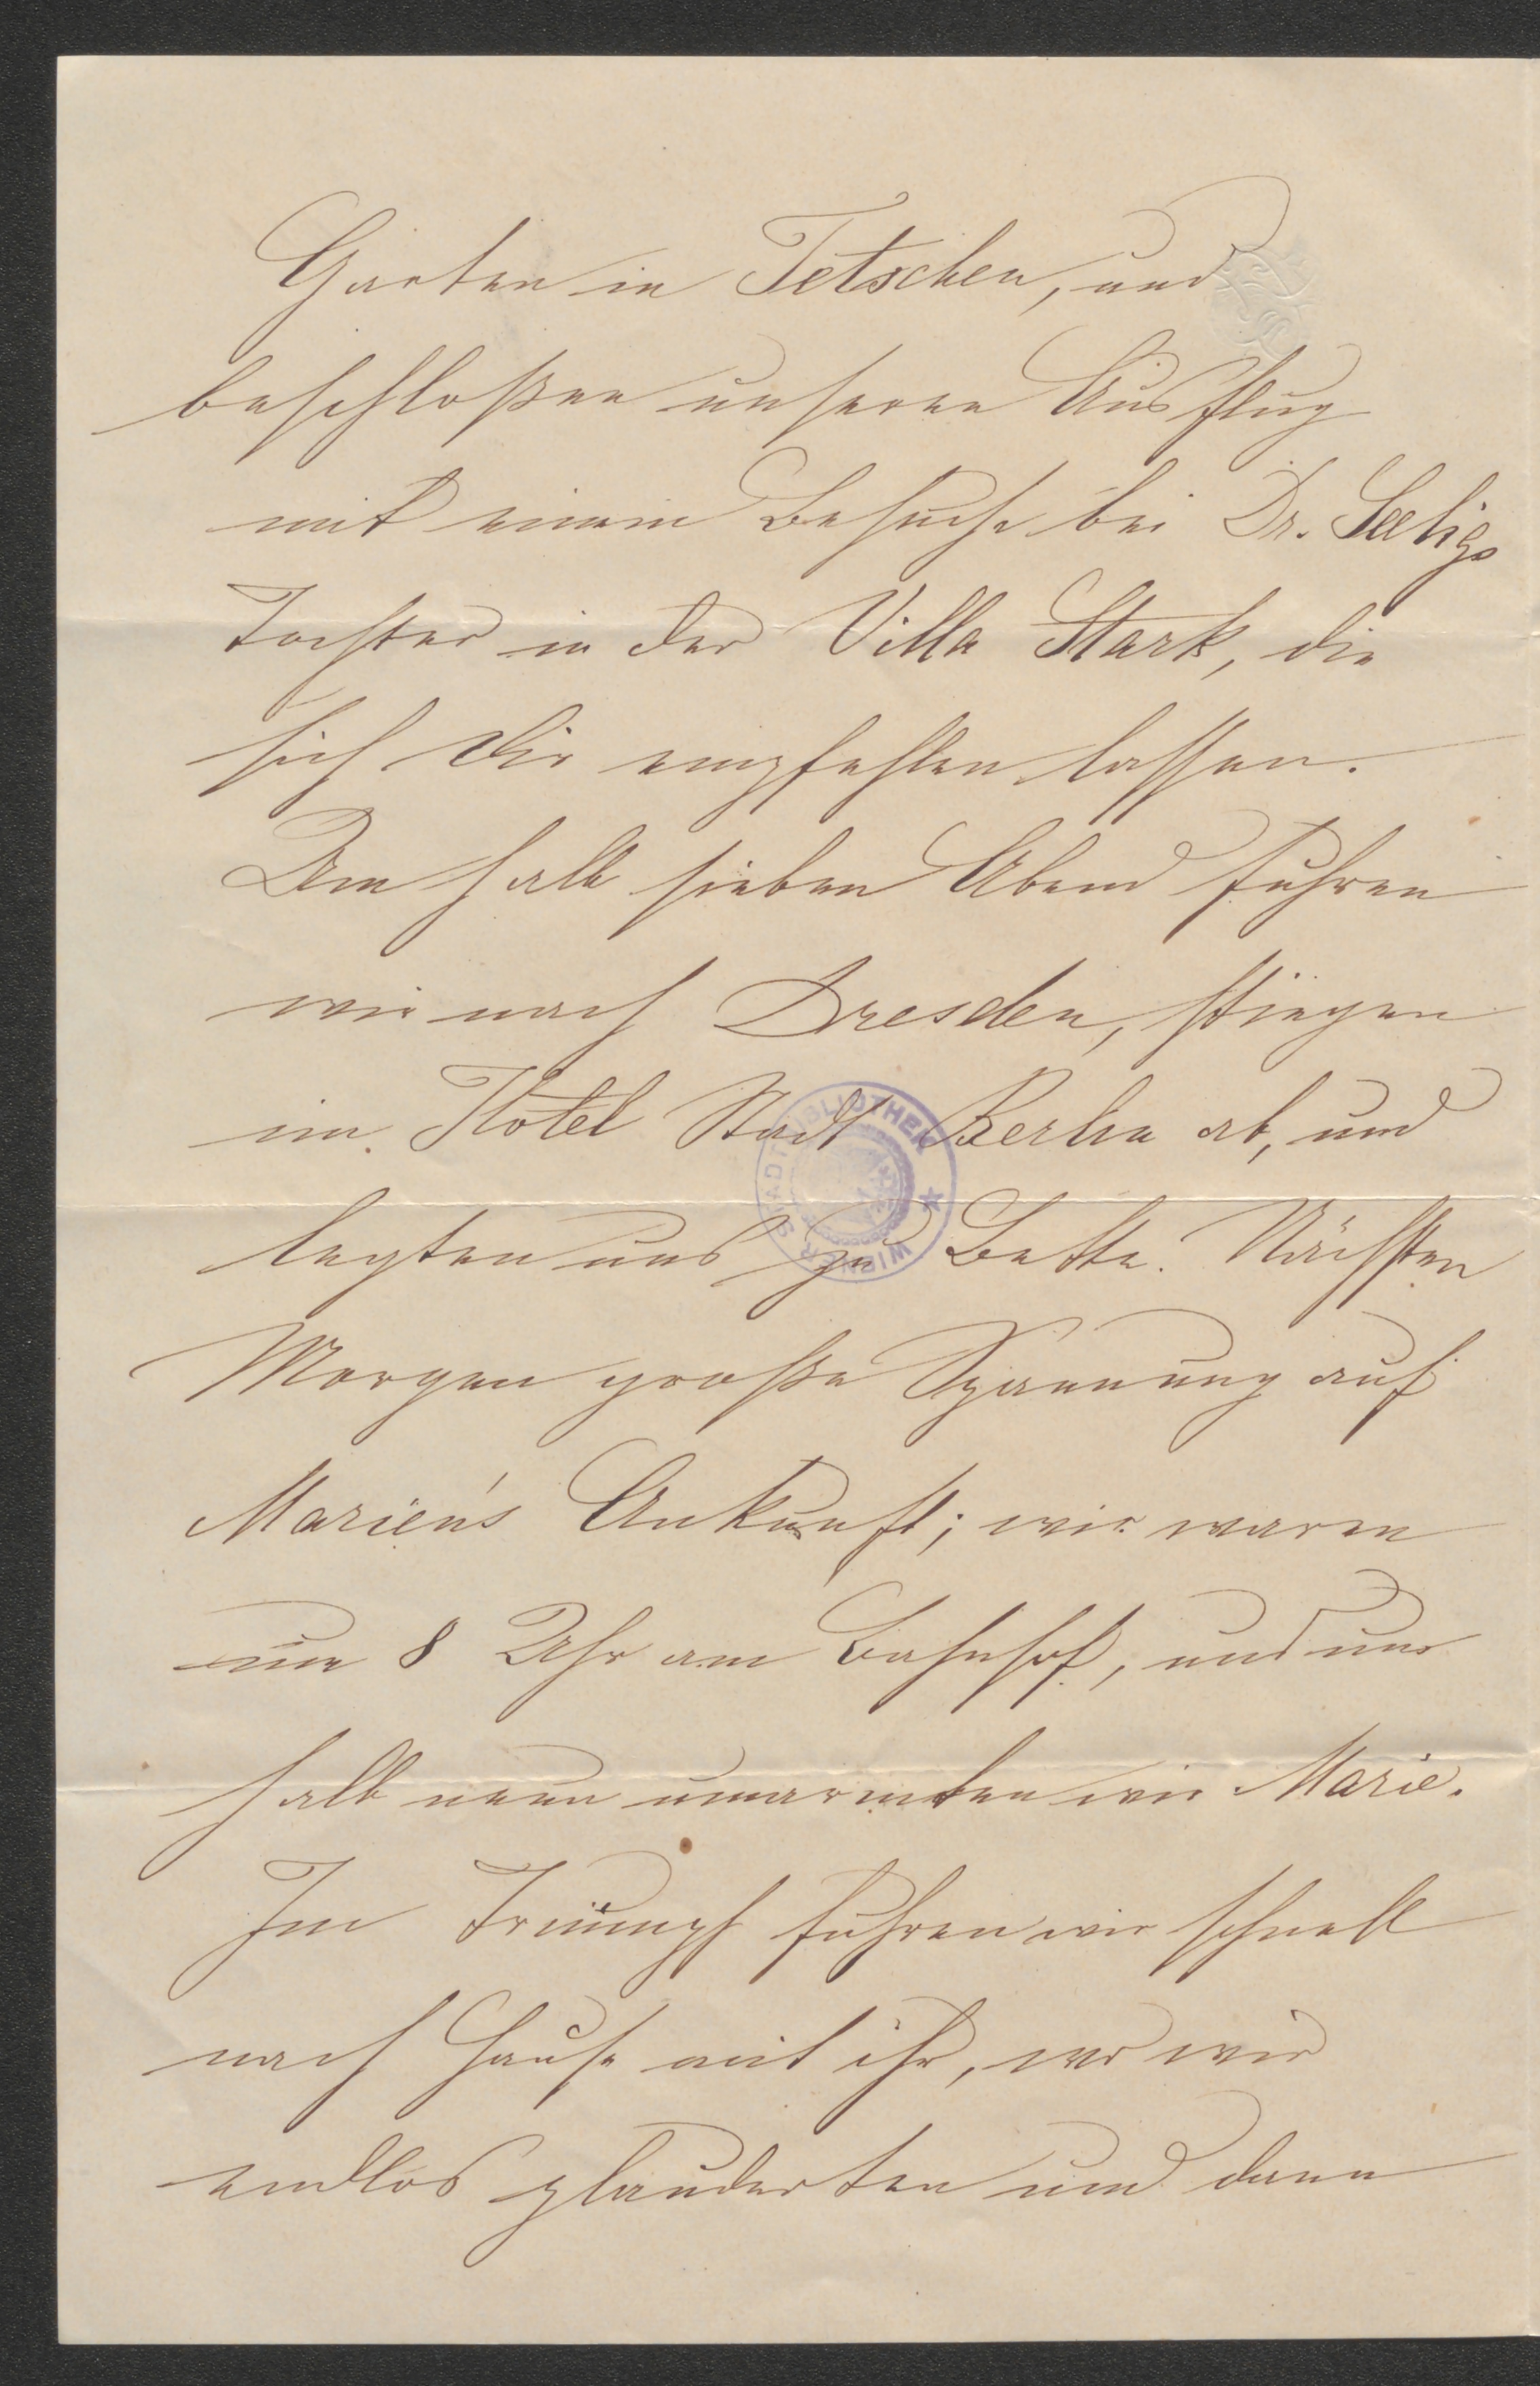 Garten in Tetschen, und
beschloßen unseren Ausflug
mit einem Besuche bei Dr. Seeligs
Tochter in der Villa Stark, die
sich Dir empfehlen lassen.
Um halb sieben Abend fuhren
wir nach Dresden, stiegen
im Hotel Stadt Berlin ab, und
legten uns zu Bette. Nächsten
Morgen große Spannung auf
Marien's Ankunft; wir waren
um 8 Uhr am Bahnhof, und um
halb neun umarmten wir Marie.
Im Triumph fuhren wir schnell
nach Hause mit ihr, wo wir
endlos plauderten und dann
WIENER STADTBIBLIOTHEK